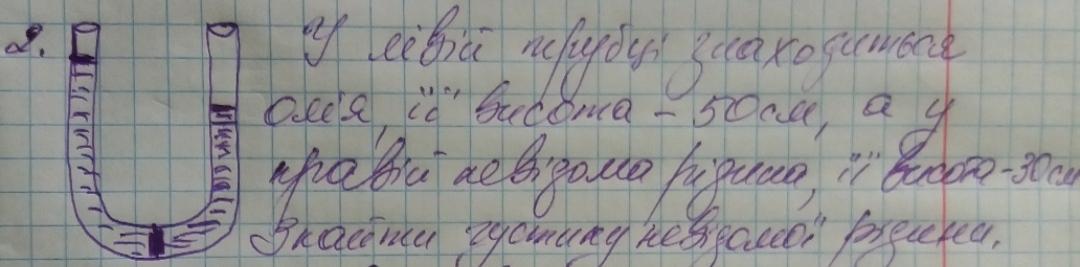 2. У лівій трубці знаходиться
олія, її висота - 50см, а у
правій невідома рідина, її висота - 30см
Знайти густину невідомої рідини.